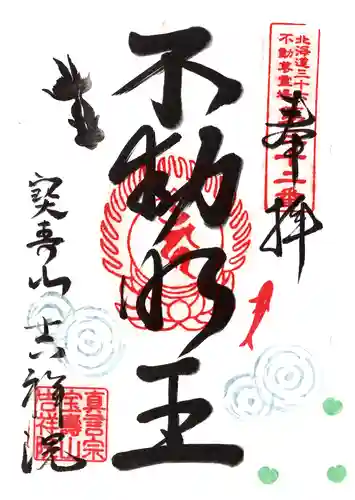 奉拝
北海道三十
不動尊霊場
二番
不動明王
寳寿山
吉祥院
真言宗
宝壽山
吉祥院